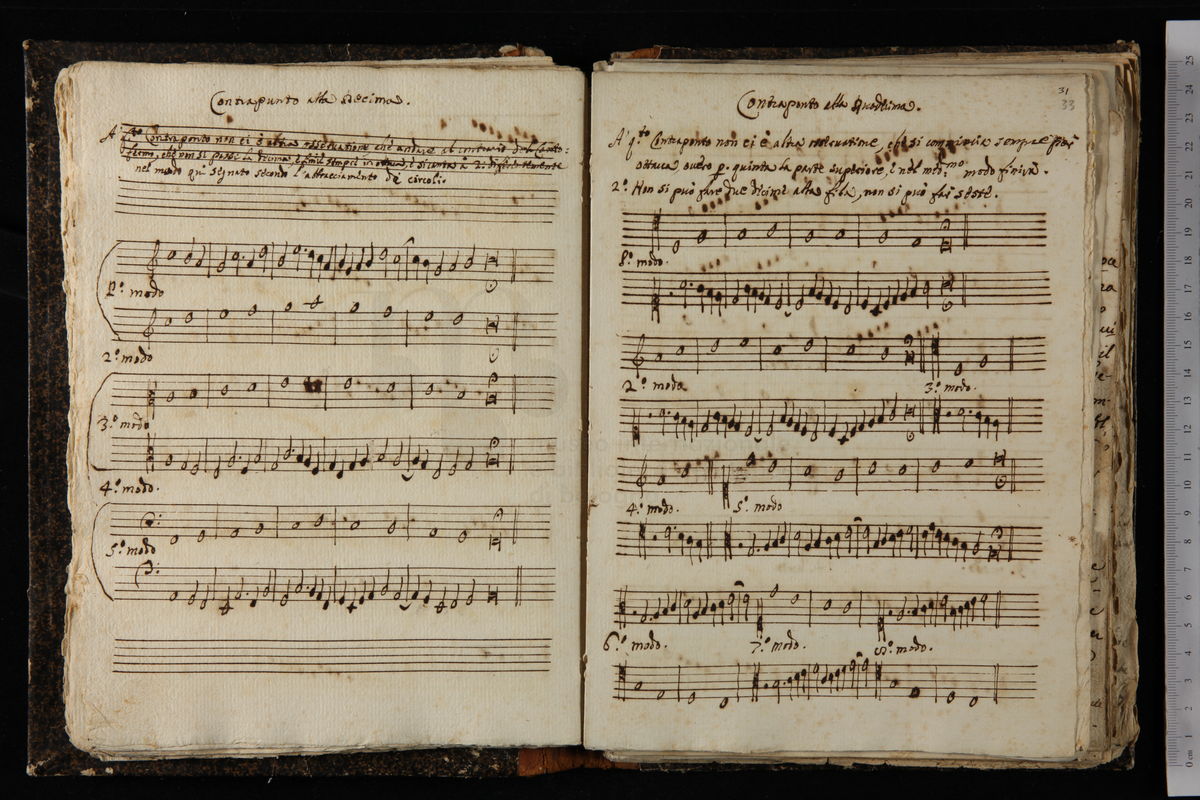 Contrapunto alla Decima.
A qto Contraponto non ci è altra osservatione che andare al contrario del Canto
fermo, che poi si potrà in decima
nel modo quì segnato secondo l'attracciamento de circoli.
P.º modo
2.º modo
3.º modo
4.º modo.
5.º modo
31
33
Contraponto alla Duodecima.
A' q.to Contraponto non ci è altra osservatione, che si comincia sempre
ottava overo p. quinta la parte superiore, e nel med.mo modo finirà.
2.º Non si può fare due decime alla fila, non si può far seste.
P.º modo.
2.º modo
3.º modo.
4.º modo.
5.º modo
6.º modo.
7.º modo.
8.º modo.
0 cm 1 2 3 4 5 6 7 8 9 10 11 12 13 14 15 16 17 18 19 20 21 22 23 24 25